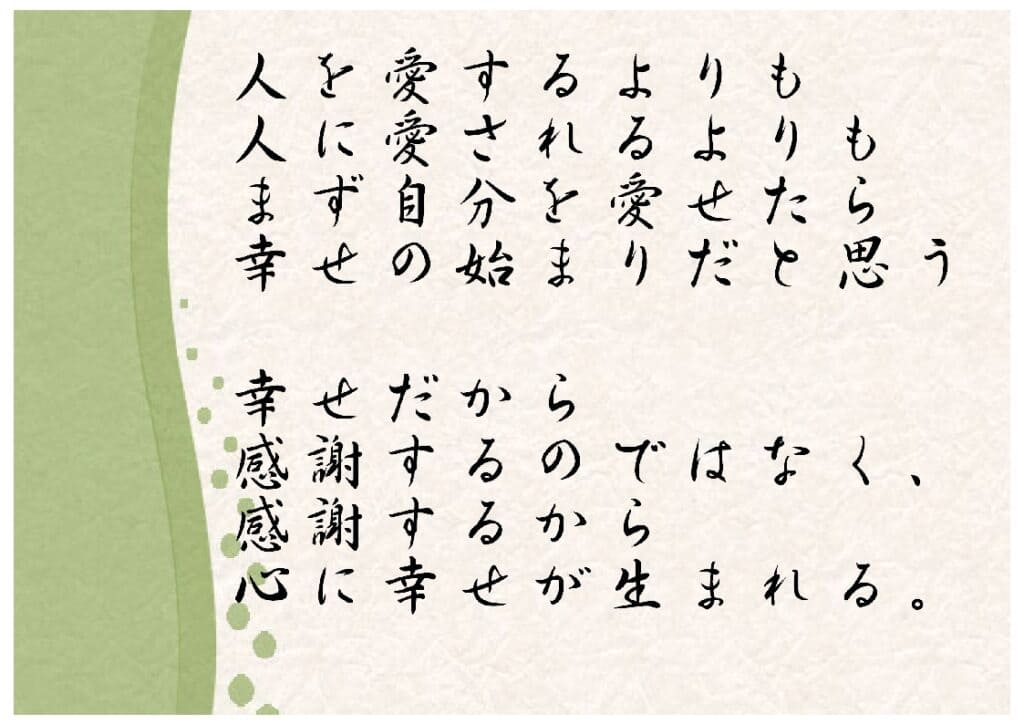 人を愛するよりも
人に愛されるよりも
まず自分を愛せたら
幸せの始まりだと思う
幸せだから
感謝するのではなく、
感謝するから
心に幸せが生まれる。